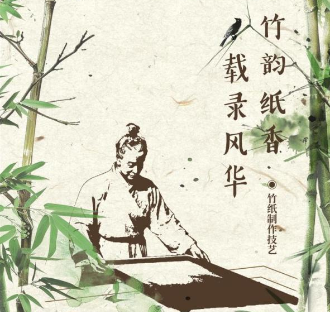 竹韵纸香·
载录风华
竹纸制作技艺